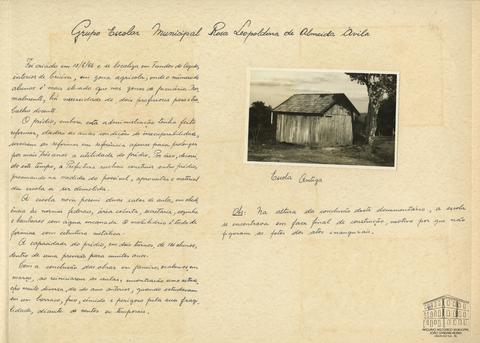 Grupo Escolar Municipal Rosa Leopoldina de Almeida Ávila
Foi criado em e se localiza em Fundos de
interior de Criúva, em zona agrícola, onde o número de
alunos é mais elevado que nas zonas de pecuária. Nor
malmente, há necessidade de dois professores para tra
balho docente.
O prédio, embora esta administração tenha feito
reformas, dadas as suas condições de irrecuperabilidade,
serviram as reformas em referência apenas para prolongar
por mais três anos a utilidade do prédio. Por isso,
deste tempo, a Prefeitura resolveu construir outro prédio,
procurando na medida do possível, aproveitar o material
da escola a ser demolida.
A escola nova possui duas salas de aula,
dentro das normas federais, área coberta, secretaria, cozinha
e banheiros com água encanada. O mobiliário é todo de
fórmica com estrutura metálica.
A capacidade do prédio, em dois turnos, de alunos,
dentro de uma previsão para muitos anos.
Com a conclusão das obras em fevereiro, os alunos em
março, ao reiniciarem as aulas, encontrarão uma
muito diversa, da do ano anterior, quando estudavam
em um barraco, frio, úmido e perigoso pela sua fragi
lidade, diante de ventos ou temporais.
Escola Antiga
Obs: Na altura da conclusão deste documentário, a escola
se encontrava em fase final de construção, motivo por que não
figuram as fotos dos atos inaugurais.
ARQUIVO HISTÓRICO MUNICIPAL
JOÃO SPADARI ADAMI